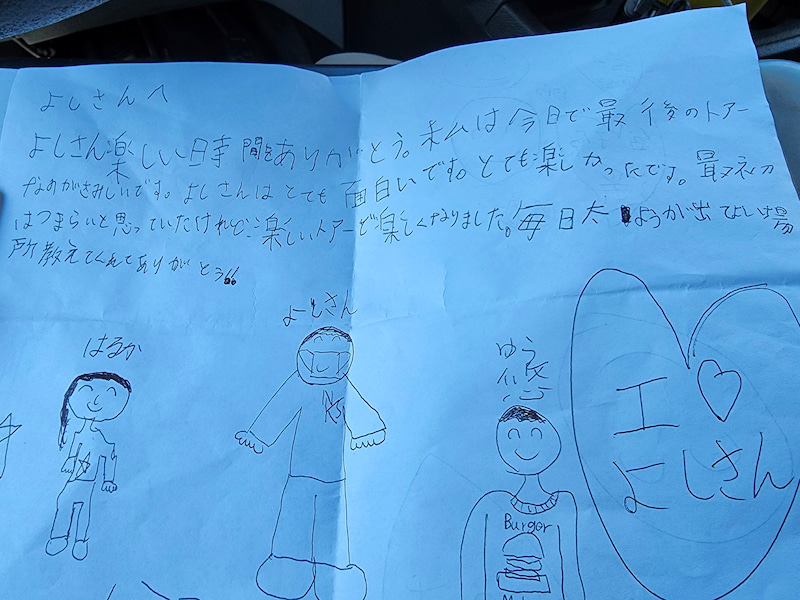 よしさんへ
よしさん楽しい時間をありがとう。私は今日で最後のトアー
なのがさみしいです。よしさんはとても面白いです。とても楽しかったです。最初
はつまらいと思っていたけれど楽しいトアーで楽しくなりました。毎日太ようが出てよい場
所教えてくれてありがとう!!
はるか
よしさん
ゆう
悠
I ♡
よしさん
Burger